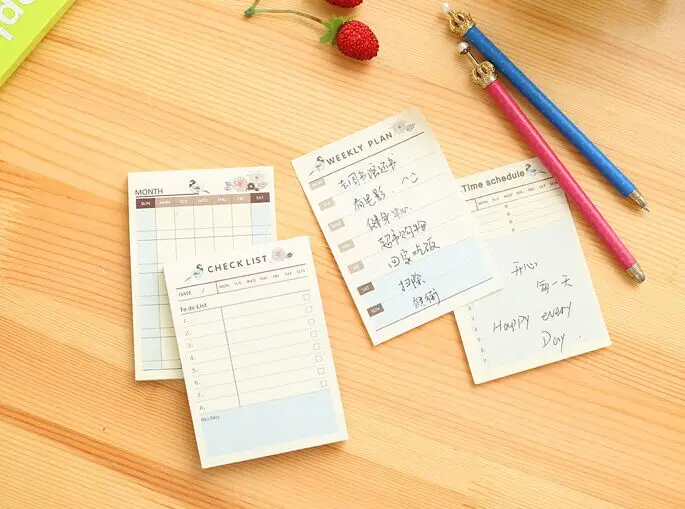 MONTH
SUN MON TUE WED THU FRI SAT
CHECK LIST
DATE / MON TUE WED THU FRI SAT SUN
To do List
1.
2.
3.
4.
5.
6.
7.
8.
MEMO
WEEKLY PLAN
MON 去图书馆还书
TUE 看电影
WED 健身中心
THU 超市购物
FRI 回家吃饭
SAT 扫除
SUN
Time schedule
MON TUE WED THU FRI SAT SUN
开心
每一天
Happy every
Day